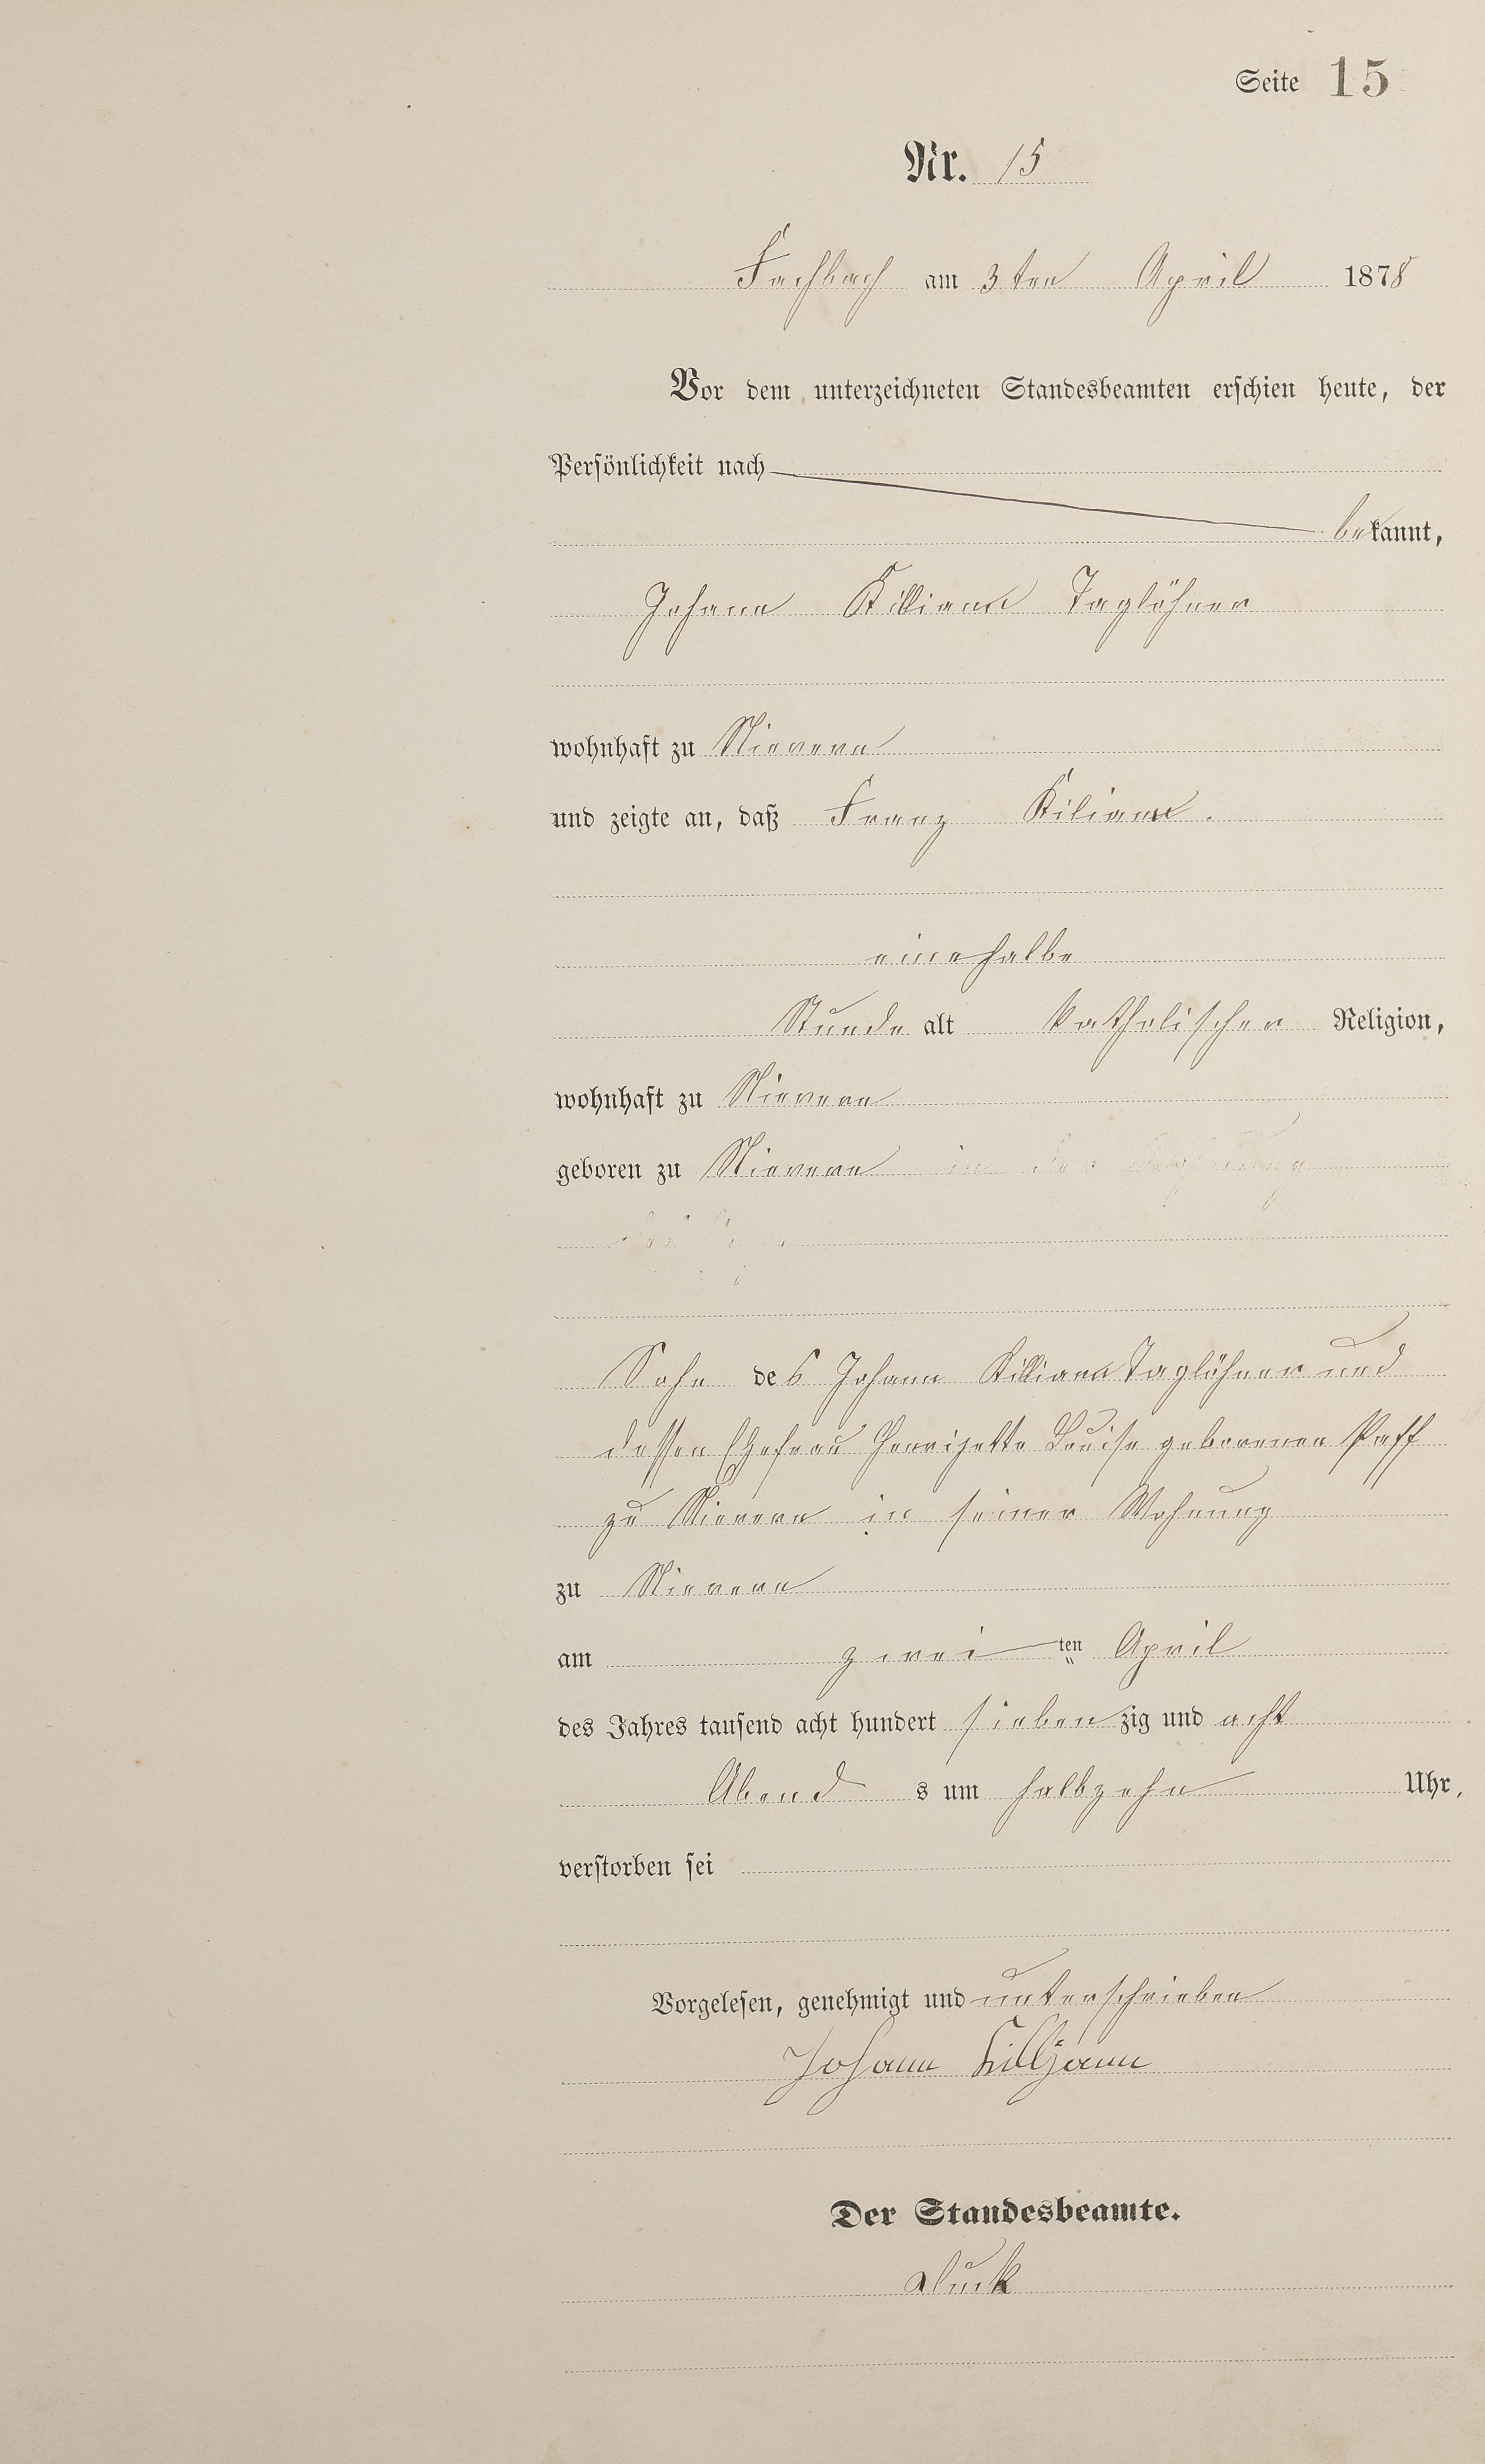 Seite 15
Nr. 15
Fachbach am 3ten April 1878
Vor dem unterzeichneten Standesbeamten erschien heute, der
Persönlichkeit nach
bekannt,
Johann Killiann Taglöhner
wohnhaft zu Nievern
und zeigte an, daß Franz Kiliann.
eine halbe
Stunde alt katholischer Religion,
wohnhaft zu Nievern
geboren zu Nievern in der
Sohn des Johann Killiann Taglöhner und
dessen Ehefrau Henrizette Louise geborenen Paff
zu Nievern in seiner Wohnung
zu Nievern
am zwei ten April
des Jahres tausend acht hundert siebenzig und acht
Abend s um halbzehn Uhr,
verstorben sei
Vorgelesen, genehmigt und unterschrieben
Johann Killjann
Der Standesbeamte.